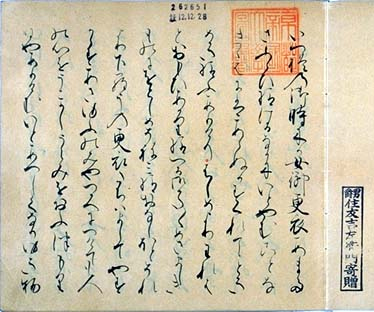 262651
12.12.28
いつれの御時にか女御更衣あまた
さふらひ給けるなかにいとやむことな
きゝはにはあらぬかすくれてとき
めき給ふありけりはしめよりわれは
とおもひあかり給へる御かた〱めさまし
きものにおとしめそねみ給おなしほとそれ
より下らうの更衣たちはましてやす
からすあさゆふのみやつかへにつけても人
の心をうこかしうらみをおふつもりに
やありけむいとあつしくなりゆき
住友吉左衛門寄贈